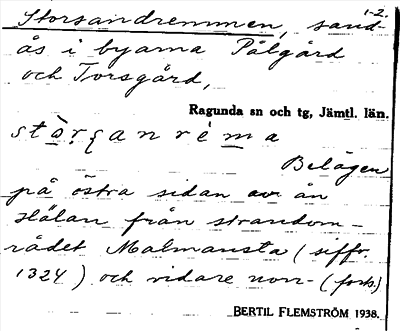 1-2.
Storsandremmen, sand-
ås i byarna Pålgård
och Torsgård,
Ragunda sn och tg, Jämtl. län.
Belägen
på östra sidan av ån
från strandom-
rådet Malmansta (siffr.
1324) och vidare norr- (forts.)
BERTIL FLEMSTRÖM 1938.